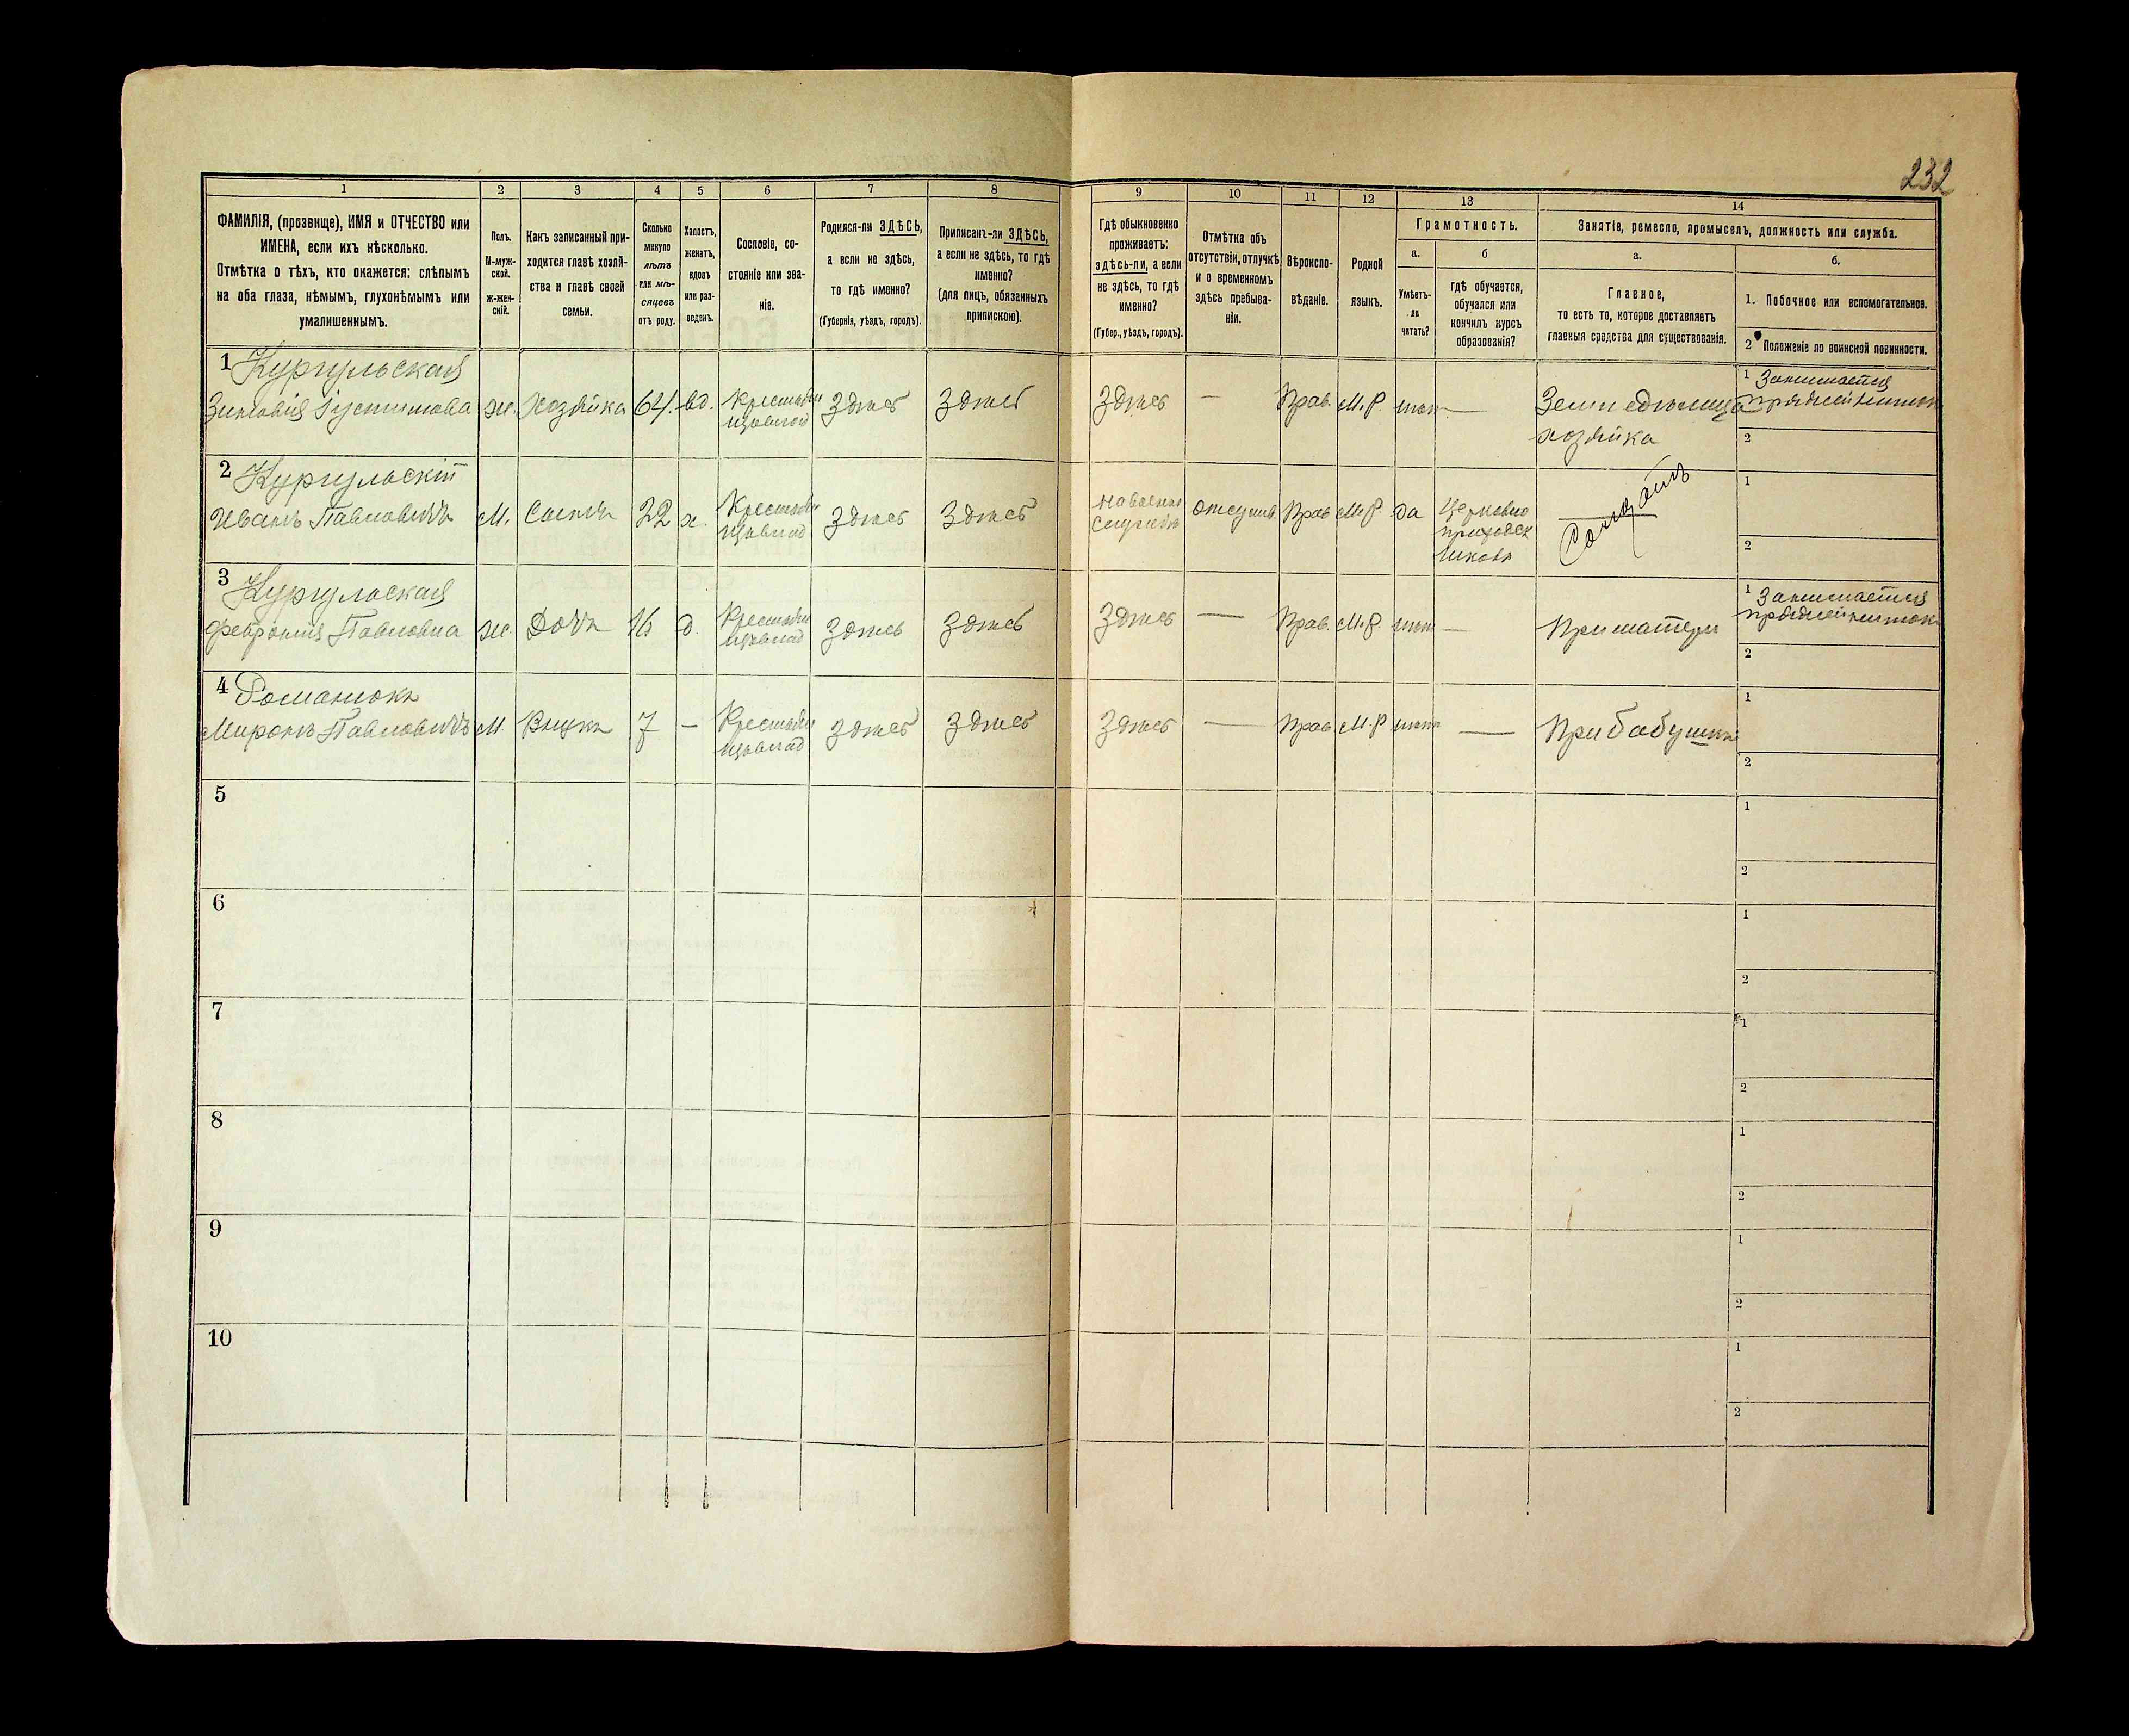 232
1
2
3
4
5
6
7
8
9
10
11
12
13
14
ФАМИЛІЯ, (прозвище), ИМЯ и ОТЧЕСТВО или
ИМЕНА, если ихъ нѣсколько.
Отмѣтка о тѣхъ, кто окажется: слѣпымъ
на оба глаза, нѣмымъ, глухонѣмымъ или
умалишеннымъ.
Полъ.
М-муж-
ской.
ж-жен-
скій.
Какъ записанный при-
ходится главѣ хозяй-
ства и главѣ своей
семьи.
Сколько
минуло
лѣтъ
или мѣ-
сяцевъ
отъ роду.
Холостъ,
женатъ,
вдовъ
или раз-
веденъ.
Сословіе, со-
стояніе или зва-
ніе.
Родился-ли ЗДѢСЬ,
а если не здѣсь,
то гдѣ именно?
(Губернія, уѣздъ, городъ).
Приписанъ-ли ЗДѢСЬ,
а если не здѣсь, то гдѣ
именно?
(для лицъ, обязанныхъ
припискою).
Гдѣ обыкновенно
проживаетъ:
здѣсь-ли, а если
не здѣсь, то гдѣ
именно?
(Губер., уѣздъ, городъ).
Отмѣтка объ
отсутствіи, отлучкѣ
и о временномъ
здѣсь пребыва-
ніи.
Вѣроиспо-
вѣданіе.
Родной
языкъ.
Грамотность.
а.
Умѣетъ-
ли
читать?
б
гдѣ обучается,
обучался или
кончилъ курсъ
образованія?
Занятіе, ремесло, промыселъ, должность или служба.
а.
Главное,
то есть то, которое доставляетъ
главныя средства для существованія.
б.
1. Побочное или вспомогательное.
2 Положеніе по воинской повинности.
1
Зиновія Іустимова
ж.
Хозяйка
64
вд.
Крестьян
здѣсь
здѣсь
здѣсь
—
Прав.
М.Р.
нѣт
—
хозяйка
1 Занимается
2
2
Иванъ Павловичъ
М.
Сынъ
22
х.
Крестьян
здѣсь
здѣсь
на военной
службѣ
отсутств
Прав
М.Р.
да
Церковно
приходск
школа
Солдатъ
1
2
3
Февронія Павловна
ж.
Дочь
16
д.
Крестьян
здѣсь
здѣсь
здѣсь
—
Прав.
М.Р.
нѣт
—
При матери
1 Занимается
2
4 Романюкъ
Миронъ Павловичъ
М.
Внукъ
7
—
Крестьян
здѣсь
здѣсь
здѣсь
—
Прав
М.Р
нѣт
—
При бабушкѣ
1
2
5
1
2
6
1
2
7
1
2
8
1
2
9
1
2
10
1
2